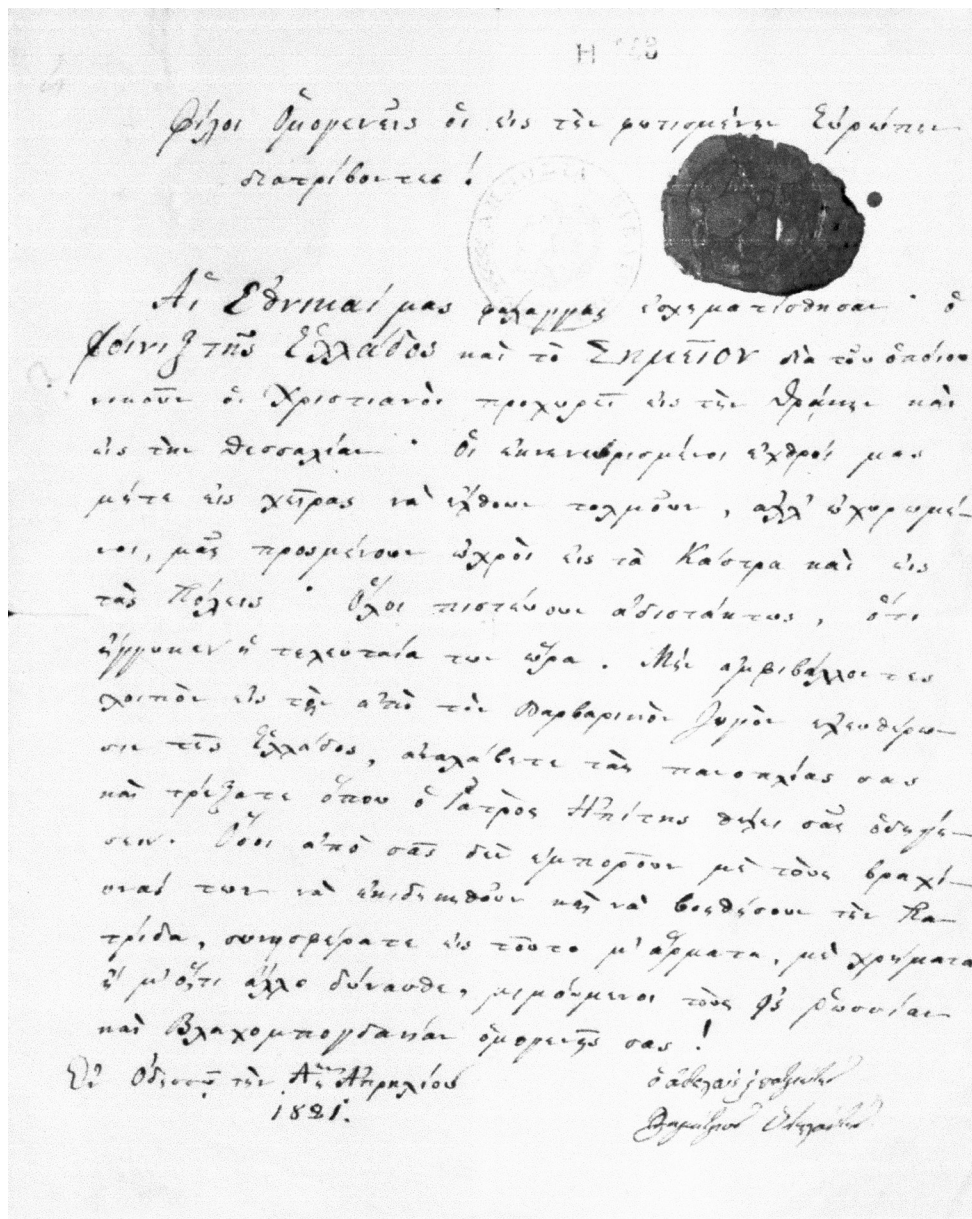 Φίλοι Ὁμογενεῖς οἱ εἰς τὴν φωτισμένην Εὐρώπην
διατρίβοντες!
Αἱ Ἐθνικαί μας φάλαγγες ἐσχηματίσθησαν · ὁ
Φοίνιξ τῆς Ἑλλάδος καὶ τὸ Σημεῖον διὰ τοῦ ὁποίου
νικοῦν οἱ Χριστιανοὶ προχωρεῖ εἰς τὴν Θράκην καὶ
εἰς τὴν Θεσσαλίαν · Οἱ ἐκνενευρισμένοι ἐχθροί μας
μήτε εἰς χεῖρας νὰ ἔλθουν τολμοῦν, ἀλλ' ὠχυρωμέ-
νοι, μᾶς προσμένουν ὠχροὶ εἰς τὰ Κάστρα καὶ εἰς
τὰς Πόλεις · Ὅλοι πιστεύουν ἀδιστάκτως, ὅτι
ἤγγικεν ἡ τελευταία των ὥρα. Μὴν ἀμφιβάλλοντες
λοιπὸν εἰς τὴν ἀπὸ τὸν βαρβαρικὸν ζυγὸν ἐλευθέρω-
σιν τῆς Ἑλλάδος, ἀναλάβετε τὰς πανοπλίας σας
καὶ τρέξατε ὅπου ὁ Ἰατρὸς Ἠπίτης θέλει σᾶς ὁδηγή-
σειν. Ὅσοι ἀπὸ σᾶς δὲν ἐμποροῦν μὲ τοὺς βραχί-
ονάς των νὰ ἐκδικηθοῦν καὶ νὰ βοηθήσουν τὴν Πα-
τρίδα, συνεισφέρατε εἰς τοῦτο μ' ἄρματα, μὲ χρήματα
ἢ μ' ὅ,τι ἄλλο δύνασθε, μιμούμενοι τοὺς Ῥωσσίαν
καὶ Βλαχομπογδανίαν ὁμογενεῖς σας!
Ἐν Ὀδεσσῷ τὴν Ἀπρηλίου
1821.
Δημήτριος Ὑψηλάντης